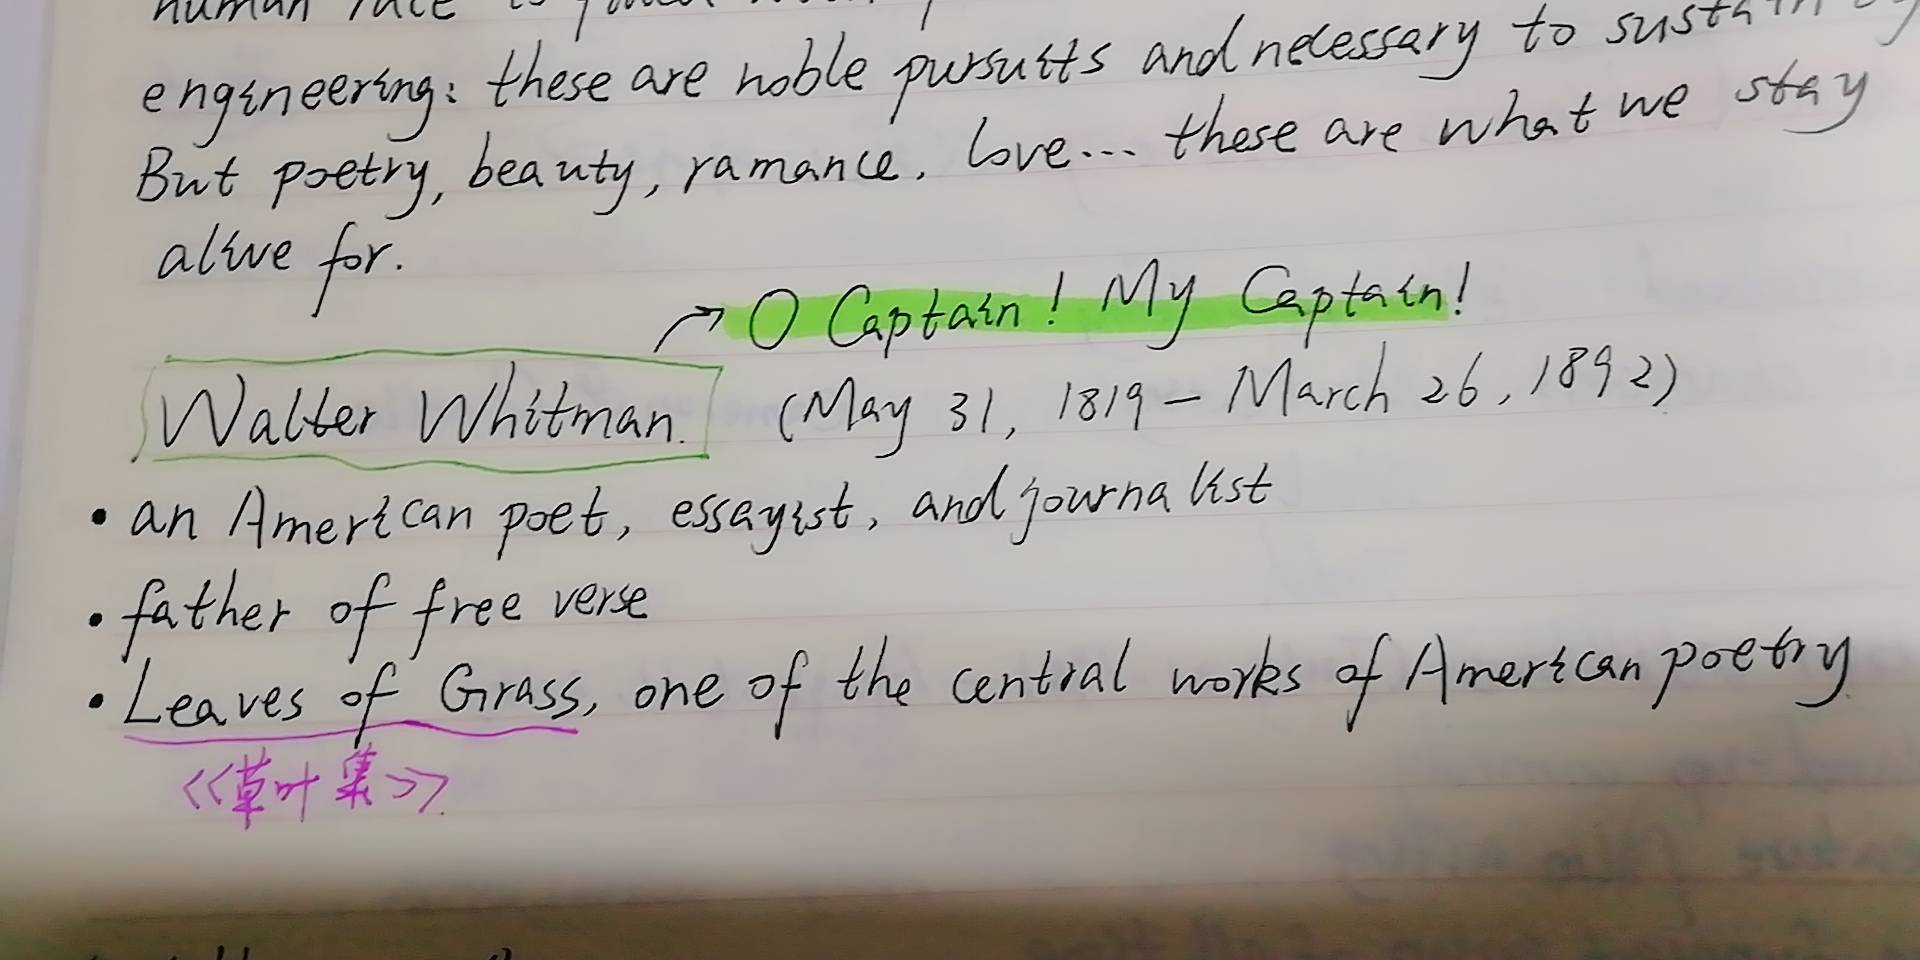 human race is
engineering: these are noble pursuits and necessary to sustain
But poetry, beauty, ramance, love... these are what we stay
alive for.
→ O Captain! My Captain!
Walter Whitman. (May 31, 1819 - March 26, 1892)
• an American poet, essayist, and journalist
• father of free verse
• Leaves of Grass, one of the central works of American poetry.
<<草叶集>>